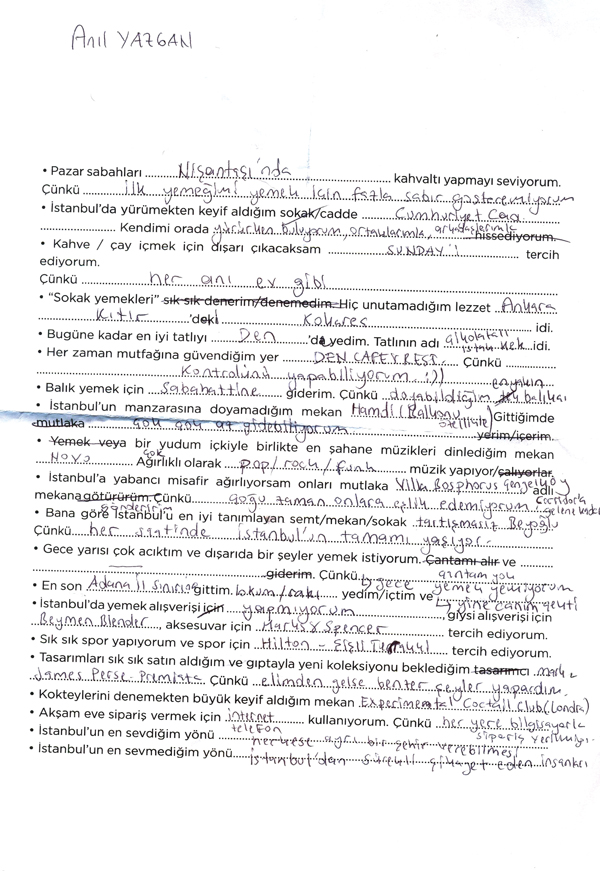 Anıl YAZGAN
• Pazar sabahları Nişantaşı'nda kahvaltı yapmayı seviyorum.
Çünkü ilk yemeğimi yemek için fazla sabır gösteremiyorum
• İstanbul'da yürümekten keyif aldığım sokak/cadde Cumhuriyet Cad
Kendimi orada yürürken buluyorum, ortaklarımla, arkadaşlarımla hissediyorum.
• Kahve / çay içmek için dışarı çıkacaksam SUNDAY'i tercih
ediyorum.
Çünkü her anı ev gibi
• "Sokak yemekleri" sık sık denerim/denemedim. Hiç unutamadığım lezzet Ankara
Kıtır 'deki Kokoreç idi.
• Bugüne kadar en iyi tatlıyı Den 'de yedim. Tatlının adı çikolatalı ıslak kek idi.
• Her zaman mutfağına güvendiğim yer DEN CAFE & REST. Çünkü
Kontrolünü yapabiliyorum :))
• Balık yemek için Sabahattine giderim. Çünkü en yakın balıkçı
• İstanbul'un manzarasına doyamadığım mekan Hamdi (Balkonu özellikle) Gittiğimde
mutlaka çok çok az gidebiliyorum yerim/içerim.
• Yemek veya bir yudum içkiyle birlikte en şahane müzikleri dinlediğim mekan
NOVO Ağırlıklı olarak çok pop/rock/funk müzik yapıyor/çalıyorlar.
• İstanbul'a yabancı misafir ağırlıyorsam onları mutlaka Villa Bosphorus Çengelköy adlı
mekana götürürüm. gönderirim Çünkü çoğu zaman onlara eşlik edemiyorum
• Bana göre İstanbul'u en iyi tanımlayan semt/mekan/sokak tartışmasız Beyoğlu
Çünkü her saatinde İstanbul'un tamamı yaşıyor.
• Gece yarısı çok acıktım ve dışarıda bir şeyler yemek istiyorum. Çantamı alır ve
giderim. Çünkü gece yemek yemiyorum çantam yok
• En son Adana il sınırına gittim. lokum/rakı yedim/içtim ve yine canım çekti
• İstanbul'da yemek alışverişi için yapmıyorum, giysi alışverişi için
Beymen Blender, aksesuvar için Harvey Spencer tercih ediyorum.
• Sık sık spor yapıyorum ve spor için Hilton - tercih ediyorum.
• Tasarımları sık sık satın aldığım ve gıptayla yeni koleksiyonu beklediğim tasarımcı marka
James Perse. Çünkü elimden gelse benzer şeyler yapardım.
• Kokteylerini denemekten büyük keyif aldığım mekan Experimental Coctail Club (Londra)
• Akşam eve sipariş vermek için internet kullanıyorum. Çünkü her yere bilgisayarla
telefon sipariş
• İstanbul'un en sevdiğim yönü herkese ayrı bir şehir verebilmesi
• İstanbul'un en sevmediğim yönü İstanbul'dan sürekli şikayet eden insanları